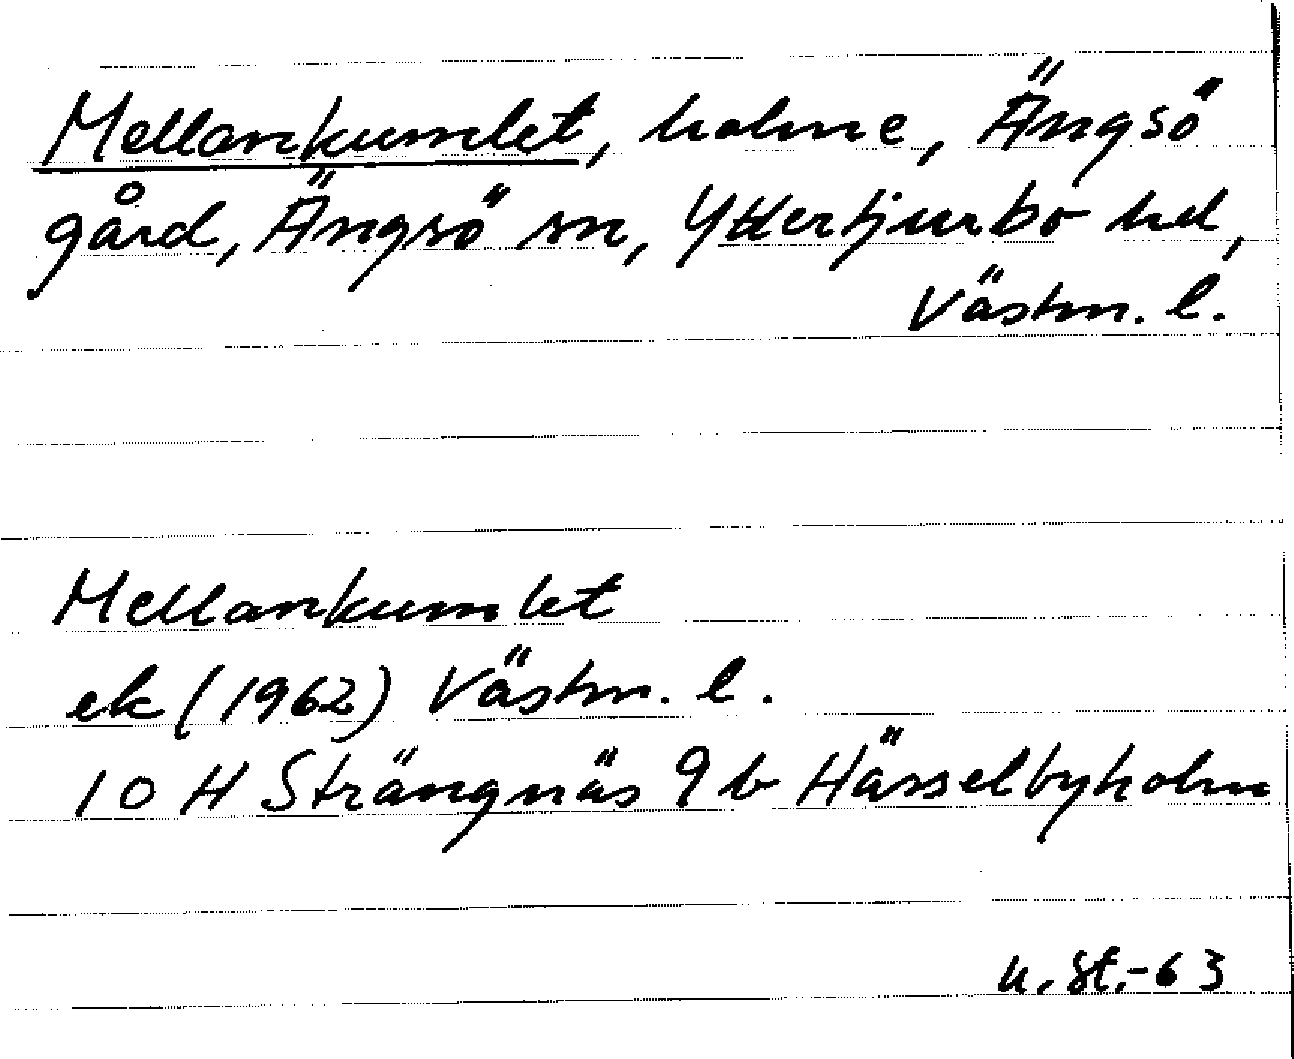 Mellankumlet, holme, Ängsö
gård, Ängsö sn, Yttertjurbo hd,
Västm. l.
Mellankumlet
ek (1962) Västm. l.
10 H Strängnäs 9 b Hässelbyholm
u. St.-63